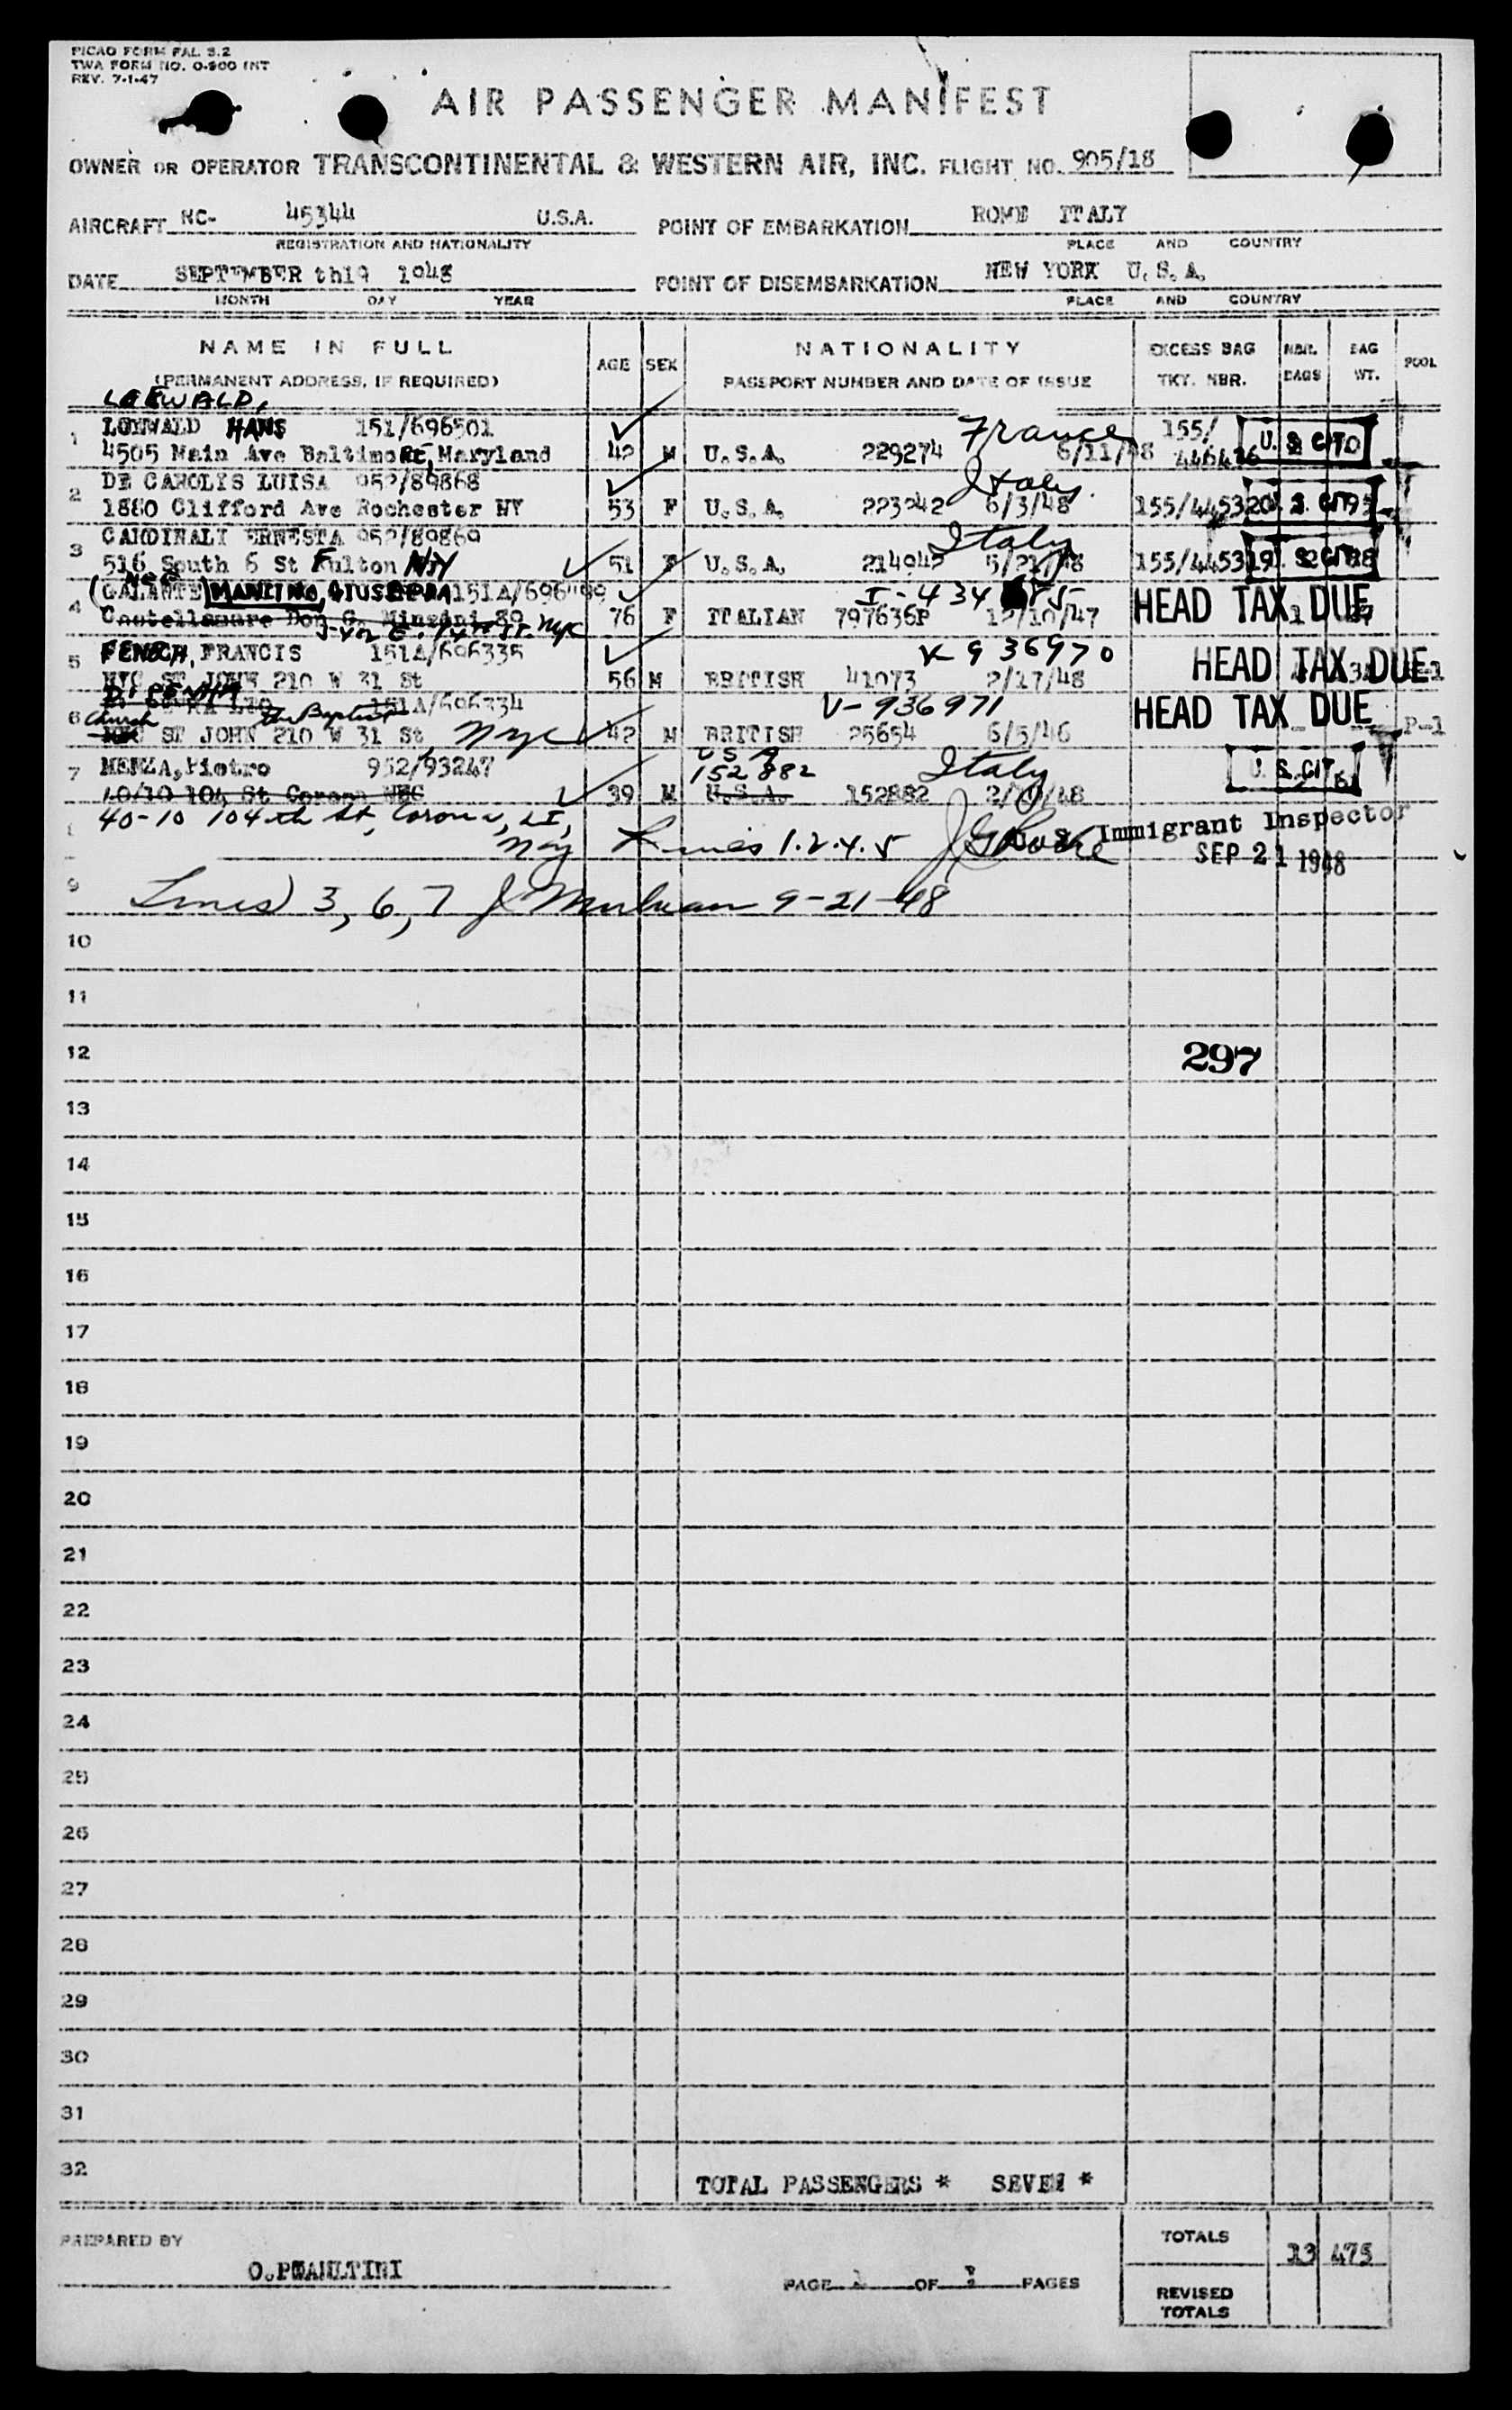 PICAO FORM FAL 3.2
TWA FORM NO. O-900 INT
REV. 7-1-47
AIR PASSENGER MANIFEST
OWNER OR OPERATOR TRANSCONTINENTAL & WESTERN AIR, INC. FLIGHT NO. 905/18
AIRCRAFT NC- 45344 U.S.A. POINT OF EMBARKATION ROME ITALY
REGISTRATION AND NATIONALITY PLACE AND COUNTRY
DATE SEPTEMBER th19 1948 POINT OF DISEMBARKATION NEW YORK U.S.A.
MONTH DAY YEAR PLACE AND COUNTRY
NAME IN FULL AGE SEX NATIONALITY EXCESS BAG NBR. BAG POOL
(PERMANENT ADDRESS, IF REQUIRED) PASSPORT NUMBER AND DATE OF ISSUE TKT. NBR. BAGS WT.
LOEWALD,
1 HANS 151/696501 France 155/
4505 Main Ave Baltimore, Maryland 42 M U.S.A. 229274 6/11/48 U.S. CIT
2 DE CAROLIS LUISA 952/89868 Italy.
1880 Clifford Ave Rochester NY 53 F U.S.A. 223242 6/3/48 155/445320
3 CARDINALI ERNESTA 952/89869 Italy
516 South 6 St Fulton NY 51 F U.S.A. 5/21/48 155/445319
4 (GALANTE) MANITNO, GIUSEPPA 151A/696 I-434
76 F ITALIAN 797636P 12/10/47 HEAD TAX DUE
5 FENECH, FRANCIS 151A/696335 V-936970
NYC ST JOHN 210 W 31 St 56 M BRITISH 41073 2/17/48 HEAD TAX DUE
6 151A/696334 V-936971
Church the Baptist
ST JOHN 210 W 31 St, NYC 42 M BRITISH 25654 6/5/46 HEAD TAX DUE P-1
7 MENZA, Pietro 952/93247 USA 152882 Italy
40/10 104 St Corona 39 M U.S.A. 152882 U.S. CIT.
40-10 104th St, Corona, LI, NY
Lines 1.2.4.5 U.S. Immigrant Inspector
SEP 21 1948
9 Lines 3, 6, 7 9-21-48
10
11
12 297
13
14
15
16
17
18
19
20
21
22
23
24
25
26
27
28
29
30
31
32 TOTAL PASSENGERS * SEVEN *
PREPARED BY TOTALS 13 475
PAGE OF PAGES
REVISED
TOTALS